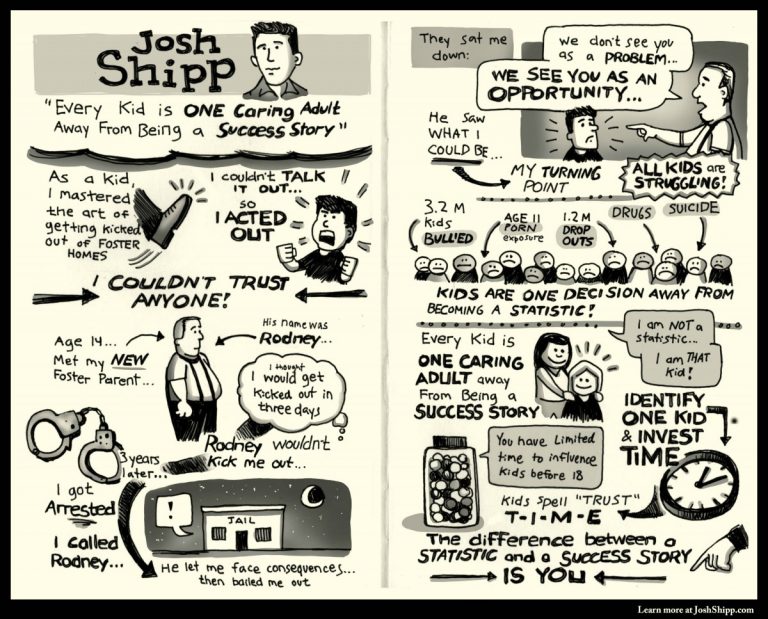 Josh
Shipp
"Every Kid is ONE Caring Adult
Away From Being a Success Story"
As a kid,
I mastered
the art of
getting kicked
out of FOSTER
HOMES
I couldn't TALK
IT OUT...
so
I ACTED
OUT
I COULDN'T TRUST
ANYONE!
Age 14...
Met my NEW
Foster Parent...
His name was
Rodney...
I thought
I would get
kicked out in
three days
Rodney wouldn't
kick me out...
3 years
later...
I got
Arrested
I called
Rodney...
!
JAIL
He let me face consequences...
then bailed me out
They sat me
down:
We don't see you
as a PROBLEM...
WE SEE YOU AS AN
OPPORTUNITY...
He saw
WHAT I
COULD BE...
MY TURNING
POINT
ALL KIDS are
STRUGGLING!
3.2 M
Kids
BULLIED
AGE 11
PORN
exposure
1.2 M
DROP
OUTS
DRUGS
SUICIDE
KIDS ARE ONE DECISION AWAY FROM
BECOMING A STATISTIC!
Every Kid is
ONE CARING
ADULT away
From Being a
SUCCESS STORY
I am NOT a
statistic...
I am THAT
kid!
IDENTIFY
ONE KID
& INVEST
TIME
You have Limited
time to influence
kids before 18
Kids spell "TRUST"
T-I-M-E
The difference between a
STATISTIC and a SUCCESS STORY
IS YOU
Learn more at JoshShipp.com